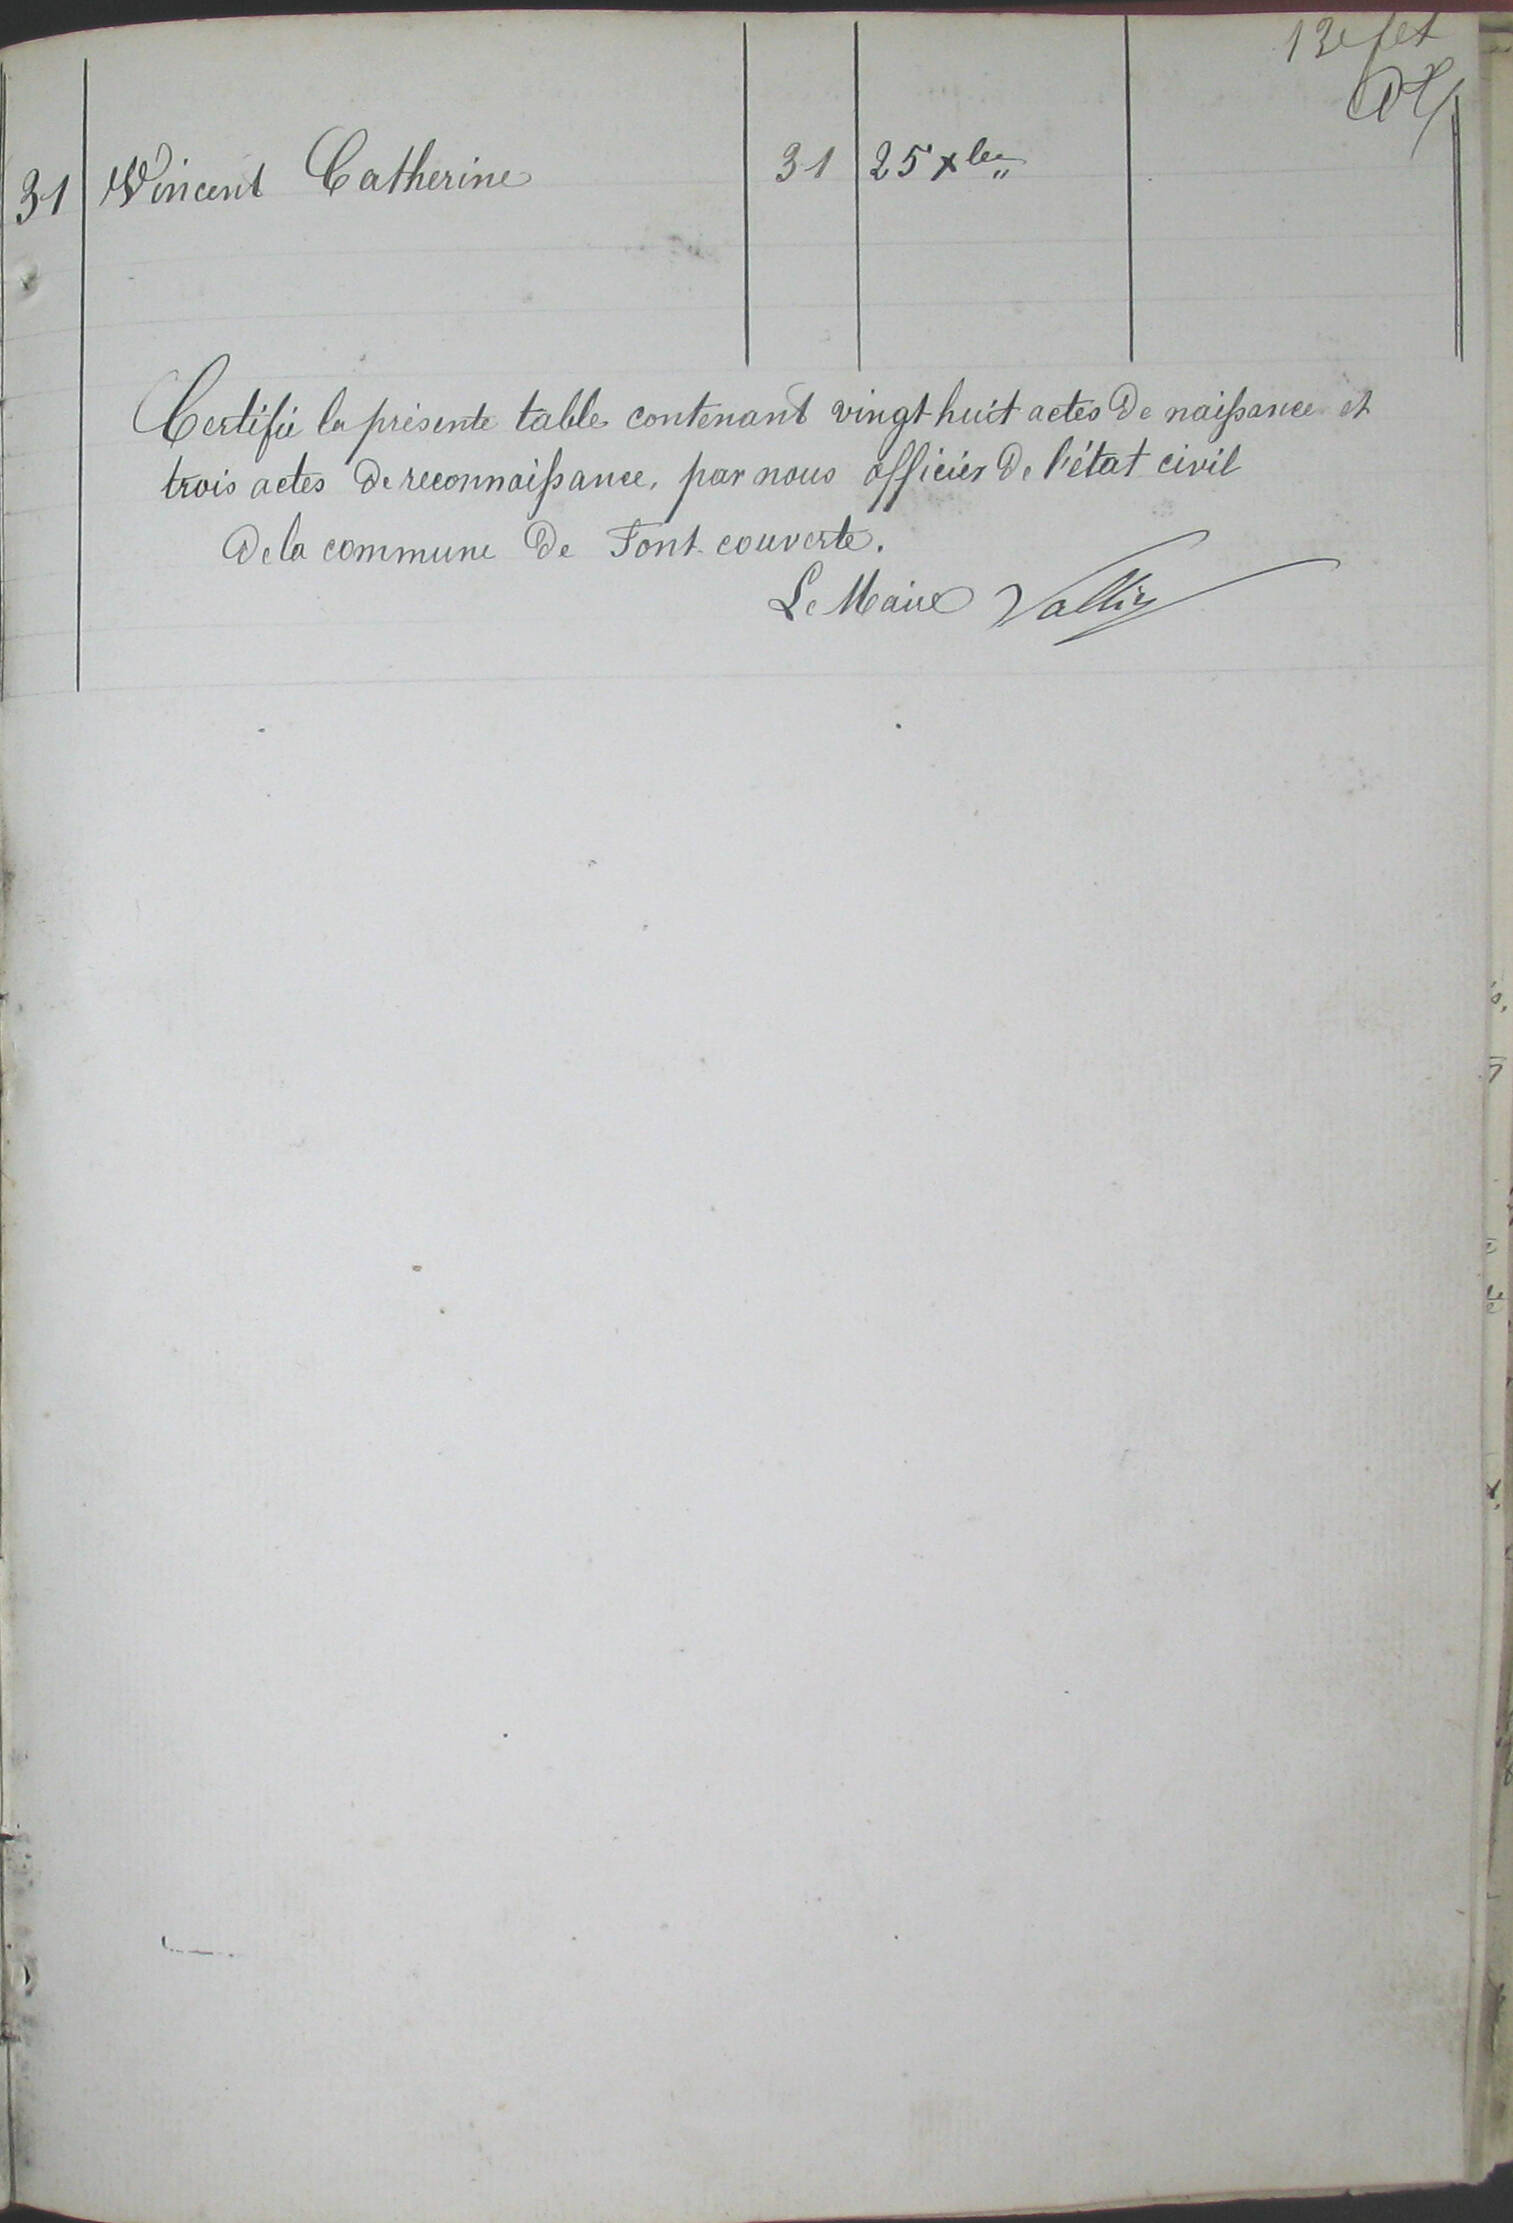 13e
31 Vincent Catherine 31 25 xbre
Certifié la présente table contenant vingt huit actes de naissance et
trois actes de reconnaissance, par nous officier de l'état civil
de la commune de Font-couverte.
Le Maire